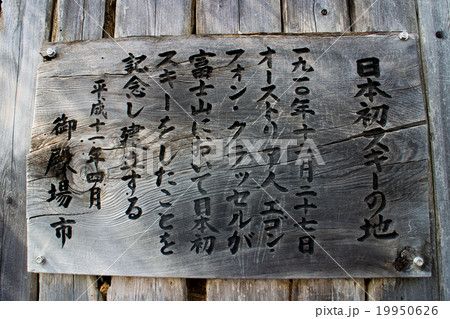 日本初スキーの地
一九一〇年十一月二十七日
オーストリア人 エゴン・
フォン・クラッセルが
富士山において日本初
スキーをしたことを
記念し建立する
平成十一年四月
御殿場市
pixta.jp - 19950626